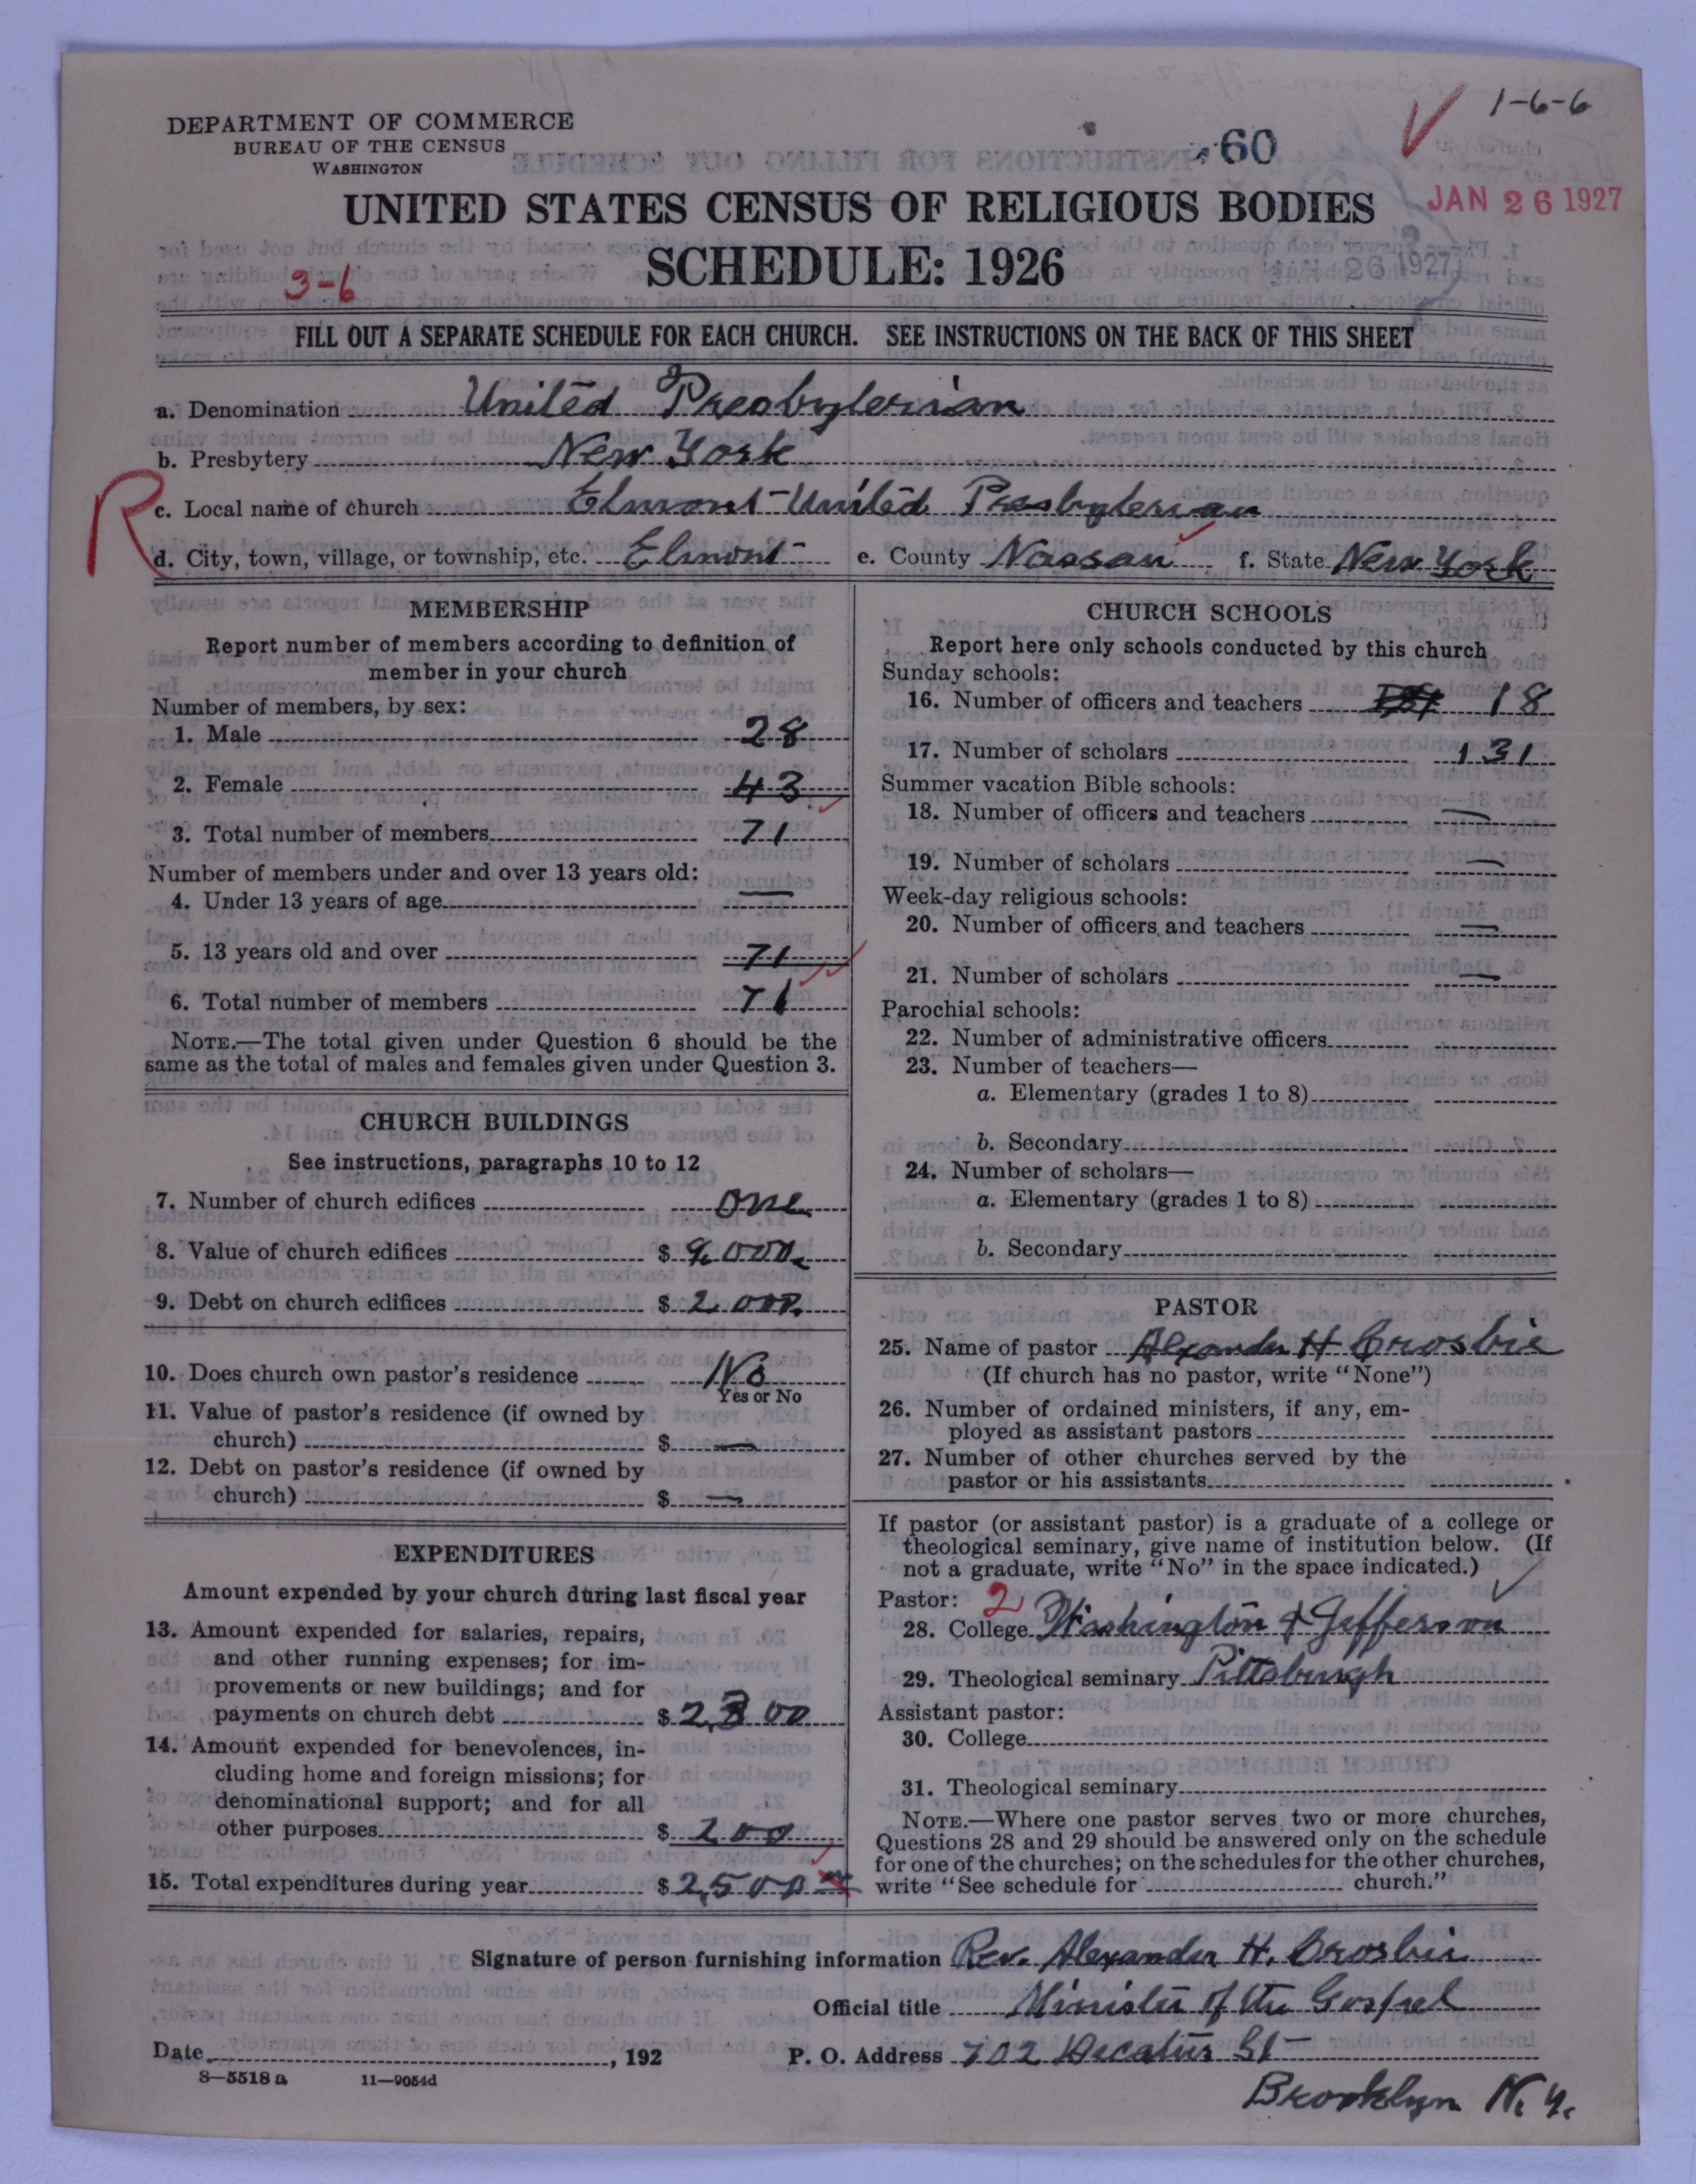 1-6-6
DEPARTMENT OF COMMERCE
BUREAU OF THE CENSUS
WASHINGTON
60
JAN 26 1927
UNITED STATES CENSUS OF RELIGIOUS BODIES
SCHEDULE: 1926
JAN 26 1927
3-6
FILL OUT A SEPARATE SCHEDULE FOR EACH CHURCH. SEE INSTRUCTIONS ON THE BACK OF THIS SHEET
a. Denomination United Presbyterian
b. Presbytery New York
R
c. Local name of church Elmont United Presbyterian
d. City, town, village, or township, etc. Elmont e. County Nassau f. State New York
MEMBERSHIP
Report number of members according to definition of
member in your church
Number of members, by sex:
1. Male 28
2. Female 43
3. Total number of members 71
Number of members under and over 13 years old:
4. Under 13 years of age —
5. 13 years old and over 71
6. Total number of members 71
NOTE.—The total given under Question 6 should be the
same as the total of males and females given under Question 3.
CHURCH BUILDINGS
See instructions, paragraphs 10 to 12
7. Number of church edifices one
8. Value of church edifices $ 9,000.
9. Debt on church edifices $ 2,000.
10. Does church own pastor's residence No
Yes or No
11. Value of pastor's residence (if owned by
church) $ —
12. Debt on pastor's residence (if owned by
church) $ —
EXPENDITURES
Amount expended by your church during last fiscal year
13. Amount expended for salaries, repairs,
and other running expenses; for im-
provements or new buildings; and for
payments on church debt $ 2,300
14. Amount expended for benevolences, in-
cluding home and foreign missions; for
denominational support; and for all
other purposes $ 200
15. Total expenditures during year $ 2,500
CHURCH SCHOOLS
Report here only schools conducted by this church
Sunday schools:
16. Number of officers and teachers 18
17. Number of scholars 131
Summer vacation Bible schools:
18. Number of officers and teachers —
19. Number of scholars —
Week-day religious schools:
20. Number of officers and teachers —
21. Number of scholars —
Parochial schools:
22. Number of administrative officers
23. Number of teachers—
a. Elementary (grades 1 to 8)
b. Secondary
24. Number of scholars—
a. Elementary (grades 1 to 8)
b. Secondary
PASTOR
25. Name of pastor Alexander H Crosbie
(If church has no pastor, write "None")
26. Number of ordained ministers, if any, em-
ployed as assistant pastors
27. Number of other churches served by the
pastor or his assistants
If pastor (or assistant pastor) is a graduate of a college or
theological seminary, give name of institution below. (If
not a graduate, write "No" in the space indicated.)
Pastor: 2
28. College Washington & Jefferson
29. Theological seminary Pittsburgh
Assistant pastor:
30. College
31. Theological seminary
NOTE.—Where one pastor serves two or more churches,
Questions 28 and 29 should be answered only on the schedule
for one of the churches; on the schedules for the other churches,
write "See schedule for church."
Signature of person furnishing information Rev. Alexander H. Crosbie
Official title Minister of the Gospel
Date , 192 P. O. Address 702 Decatur St
8—5518 a 11—9054d
Brooklyn N. Y.